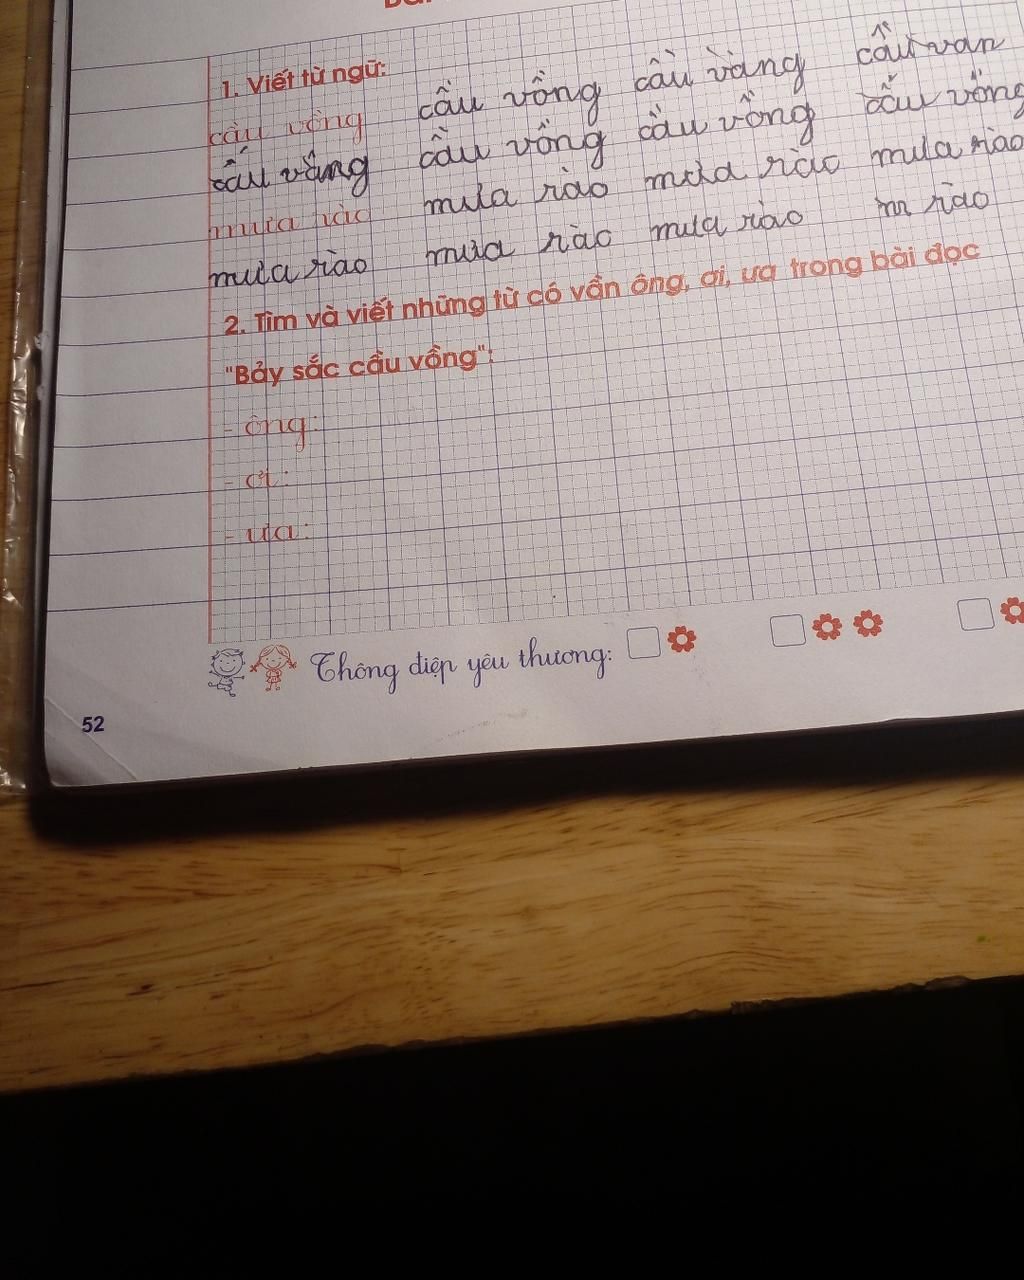 1. Viết từ ngữ:
cầu vồng cầu vồng cầu vồng cầu van
cầu vồng cầu vồng cầu vồng cầu vồng
mưa rào mưa rào mưa rào mưa rào
mưa rào mưa rào mưa rào m rào
2. Tìm và viết những từ có vần ông, ơi, ưa trong bài đọc
"Bảy sắc cầu vồng":
- ông:
- ơi:
- ưa:
Thông điệp yêu thương:
52